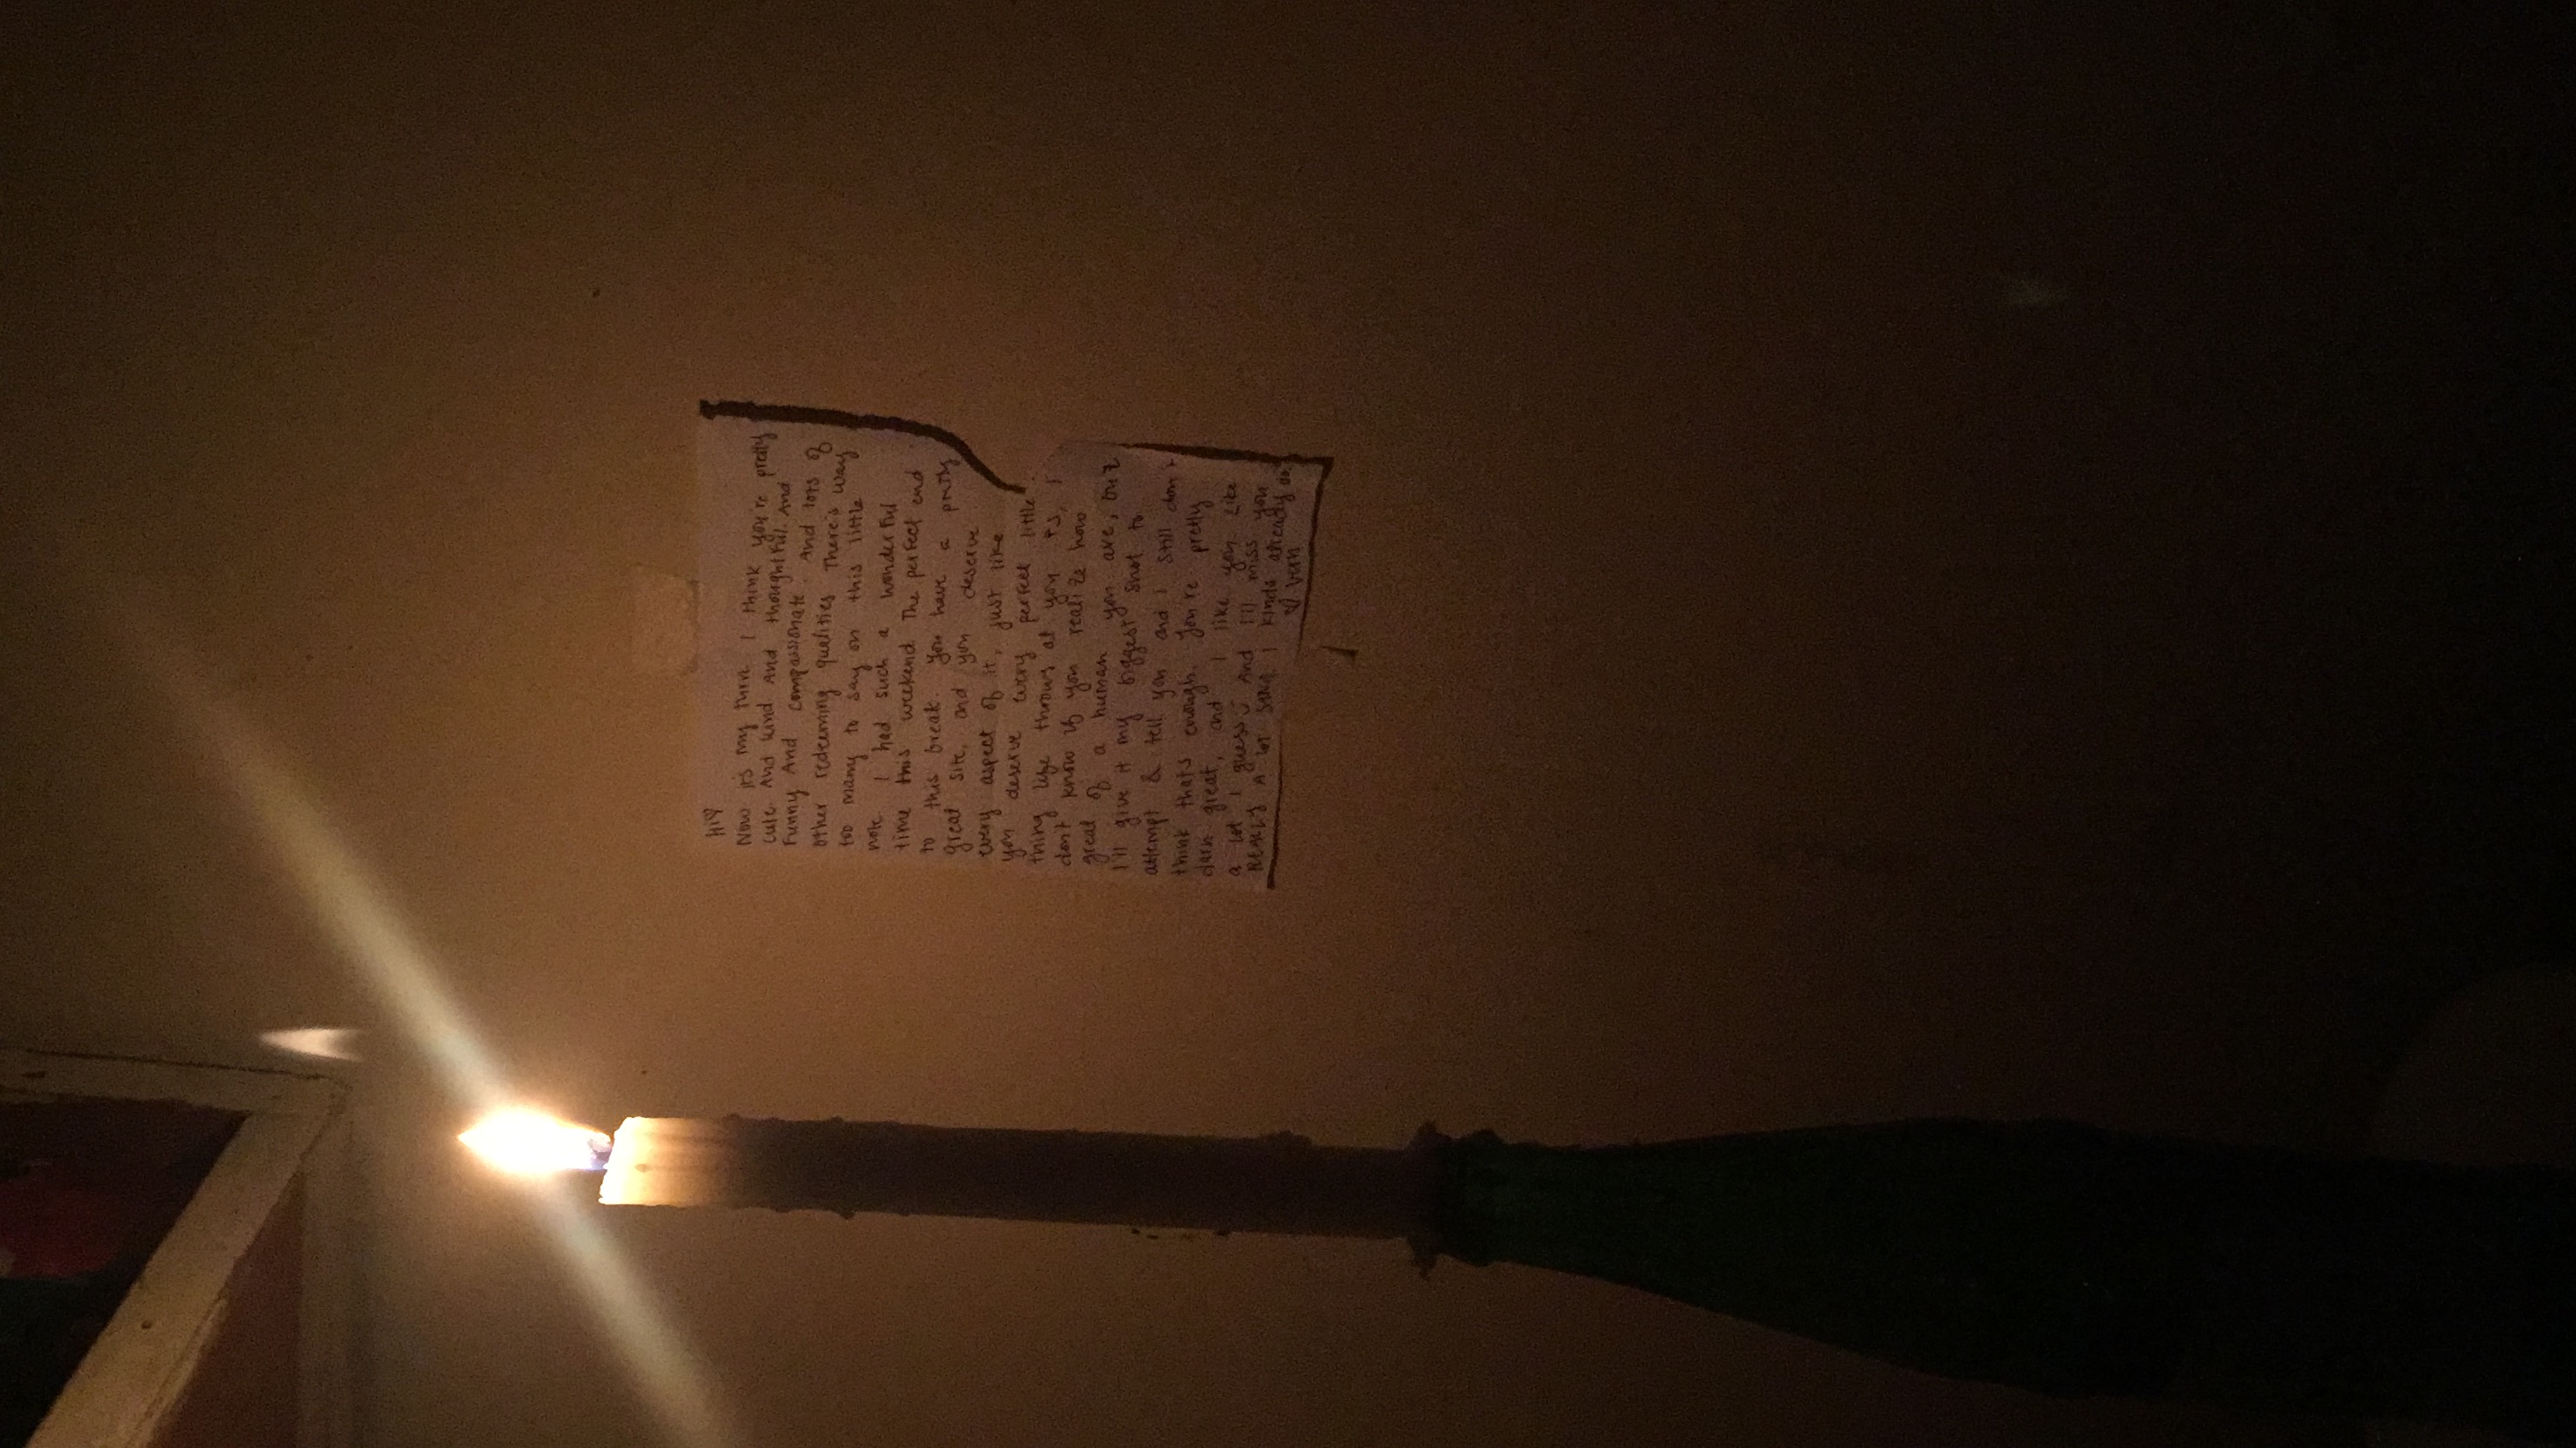 Hi♡
Now it's my turn. I think you're pretty
cute. And kind. And thoughtful. And
funny And compassionate. And lots of
other redeeming qualities There's way
too many to say on this little
note. I had such a wonderful
time this weekend. The perfect end
to this break. You have a pretty
great site, and you deserve
every aspect of it, just like
you deserve every perfect little
thing life throws at you. PS, I
don't know if you realize how
great of a human you are, but
I'll give it my biggest shot to
attempt & tell you and I still don't
think thats enough. You're pretty
darn great, and I like you like
a lot I guess And I'll miss you
REALLY A LOT I kinda already do.
♡ Vern